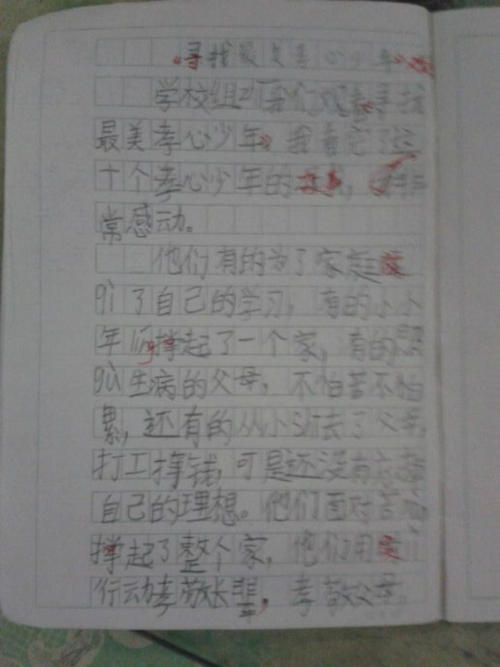 《寻找最美孝心少年》
学校组织我们观看寻找
最美孝心少年》我看完了这
十个孝心少年的，非
常感动。
他们有的为了家庭
qì了自己的学习，有的小小
年líng撑起了一个家，有的照
gù生病的父母，不怕苦不怕
累，还有的从小失去了父母
打工挣钱，可是还没有
自己的理想。他们面对苦
撑起了整个家，他们用
行动孝敬长辈，孝敬父母，